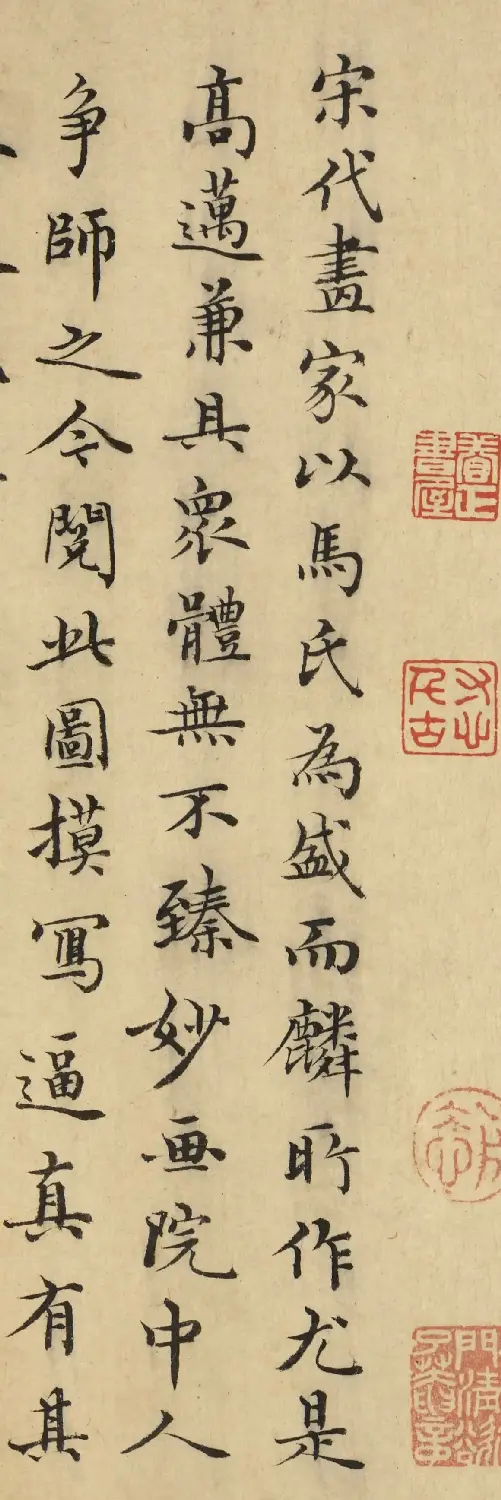 宋代畫家以馬氏為盛而麟所作尤是
高邁兼具衆體無不臻妙画院中人
争師之今閱此圖摸寫逼真有其